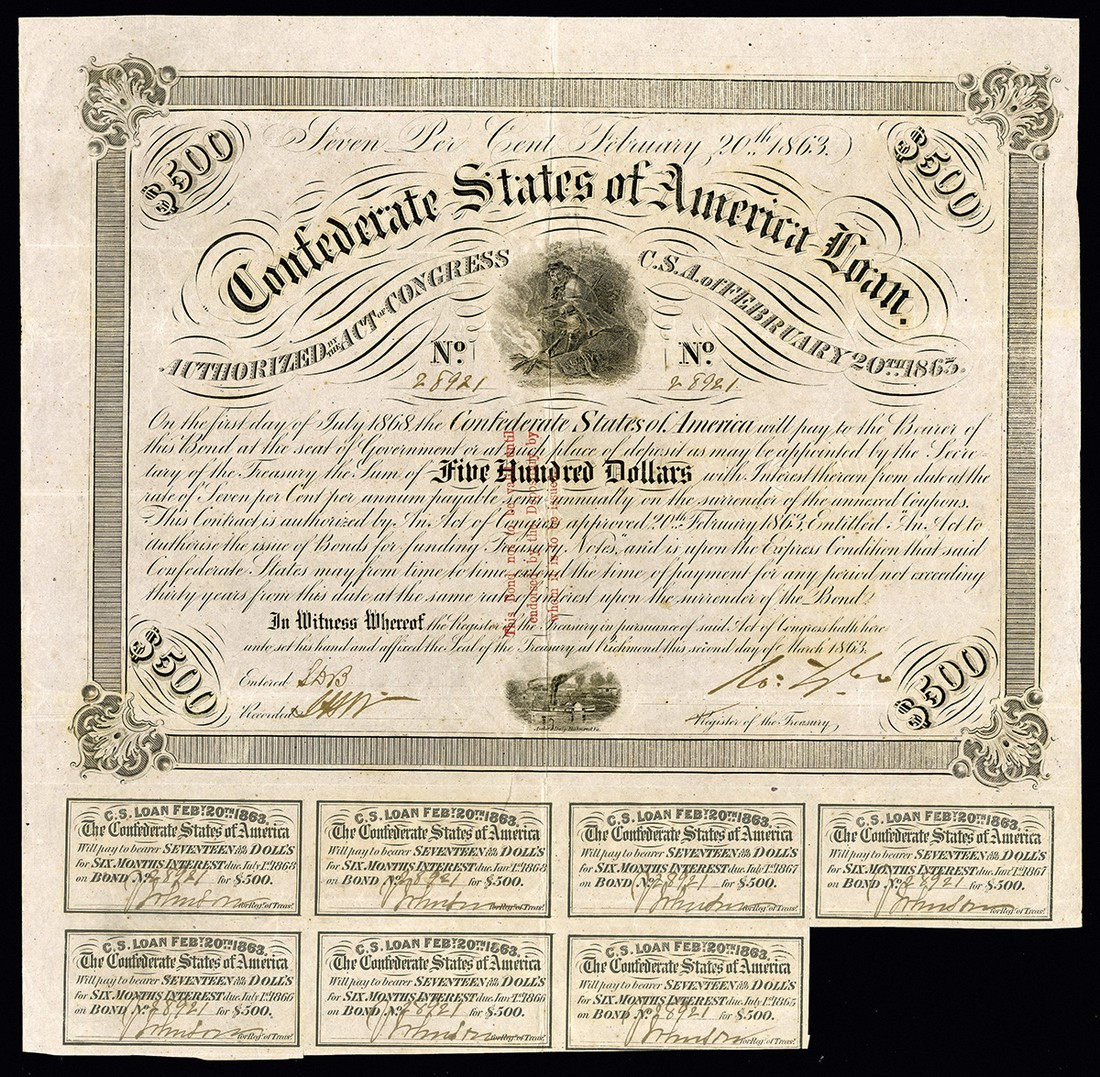 Seven Per Cent February 20th 1863.
$500
$500
Confederate States of America Loan.
AUTHORIZED BY THE ACT OF CONGRESS
C.S.A. of FEBRUARY 20TH 1863.
No.
No.
28921
28921
On the first day of July 1868, the Confederate States of America will pay to the Bearer of
this Bond at the seat of Government or at place of deposit as may be appointed by the Secre
tary of the Treasury the Sum of Five Hundred Dollars with Interest thereon from date at the
rate of Seven per Cent per annum payable semi annually on the surrender of the annexed Coupons.
This Contract is authorized by An Act of Congress approved 20th February 1863, Entitled "An Act to
authorise the issue of Bonds for funding Treasury Notes," and is upon the Express Condition that said
Confederate States may from time to time extend the time of payment for any period not exceeding
thirty years from this date at the same rate interest upon the surrender of the Bond.
In Witness Whereof, the Register of the Treasury in pursuance of said Act of Congress hath here
unto set his hand and affixed the Seal of the Treasury at Richmond this second day of March 1863.
This Bond not to be valid until
endorsed by the Depositary by
whom it is to be issued
$500
$500
Entered
Recorded
Register of the Treasury
C.S. LOAN FEBY. 20TH 1863.
The Confederate States of America
Will pay to bearer SEVENTEEN 50/100 DOLL'S
for SIX MONTHS INTEREST due July 1st 1868
on BOND No. 28921 for $500.
for Regr. of Treasy.
C.S. LOAN FEBY. 20TH 1863.
The Confederate States of America
Will pay to bearer SEVENTEEN 50/100 DOLL'S
for SIX MONTHS INTEREST due Jany 1st 1868
on BOND No. 28921 for $500.
for Regr. of Treasy.
C.S. LOAN FEBY. 20TH 1863.
The Confederate States of America
Will pay to bearer SEVENTEEN 50/100 DOLL'S
for SIX MONTHS INTEREST due July 1st 1867
on BOND No. 28921 for $500.
for Regr. of Treasy.
C.S. LOAN FEBY. 20TH 1863.
The Confederate States of America
Will pay to bearer SEVENTEEN 50/100 DOLL'S
for SIX MONTHS INTEREST due Jany 1st 1867
on BOND No. 28921 for $500.
for Regr. of Treasy.
C.S. LOAN FEBY. 20TH 1863.
The Confederate States of America
Will pay to bearer SEVENTEEN 50/100 DOLL'S
for SIX MONTHS INTEREST due July 1st 1866
on BOND No. 28921 for $500.
for Regr. of Treasy.
C.S. LOAN FEBY. 20TH 1863.
The Confederate States of America
Will pay to bearer SEVENTEEN 50/100 DOLL'S
for SIX MONTHS INTEREST due Jany 1st 1866
on BOND No. 28921 for $500.
for Regr. of Treasy.
C.S. LOAN FEBY. 20TH 1863.
The Confederate States of America
Will pay to bearer SEVENTEEN 50/100 DOLL'S
for SIX MONTHS INTEREST due July 1st 1865
on BOND No. 28921 for $500.
for Regr. of Treasy.